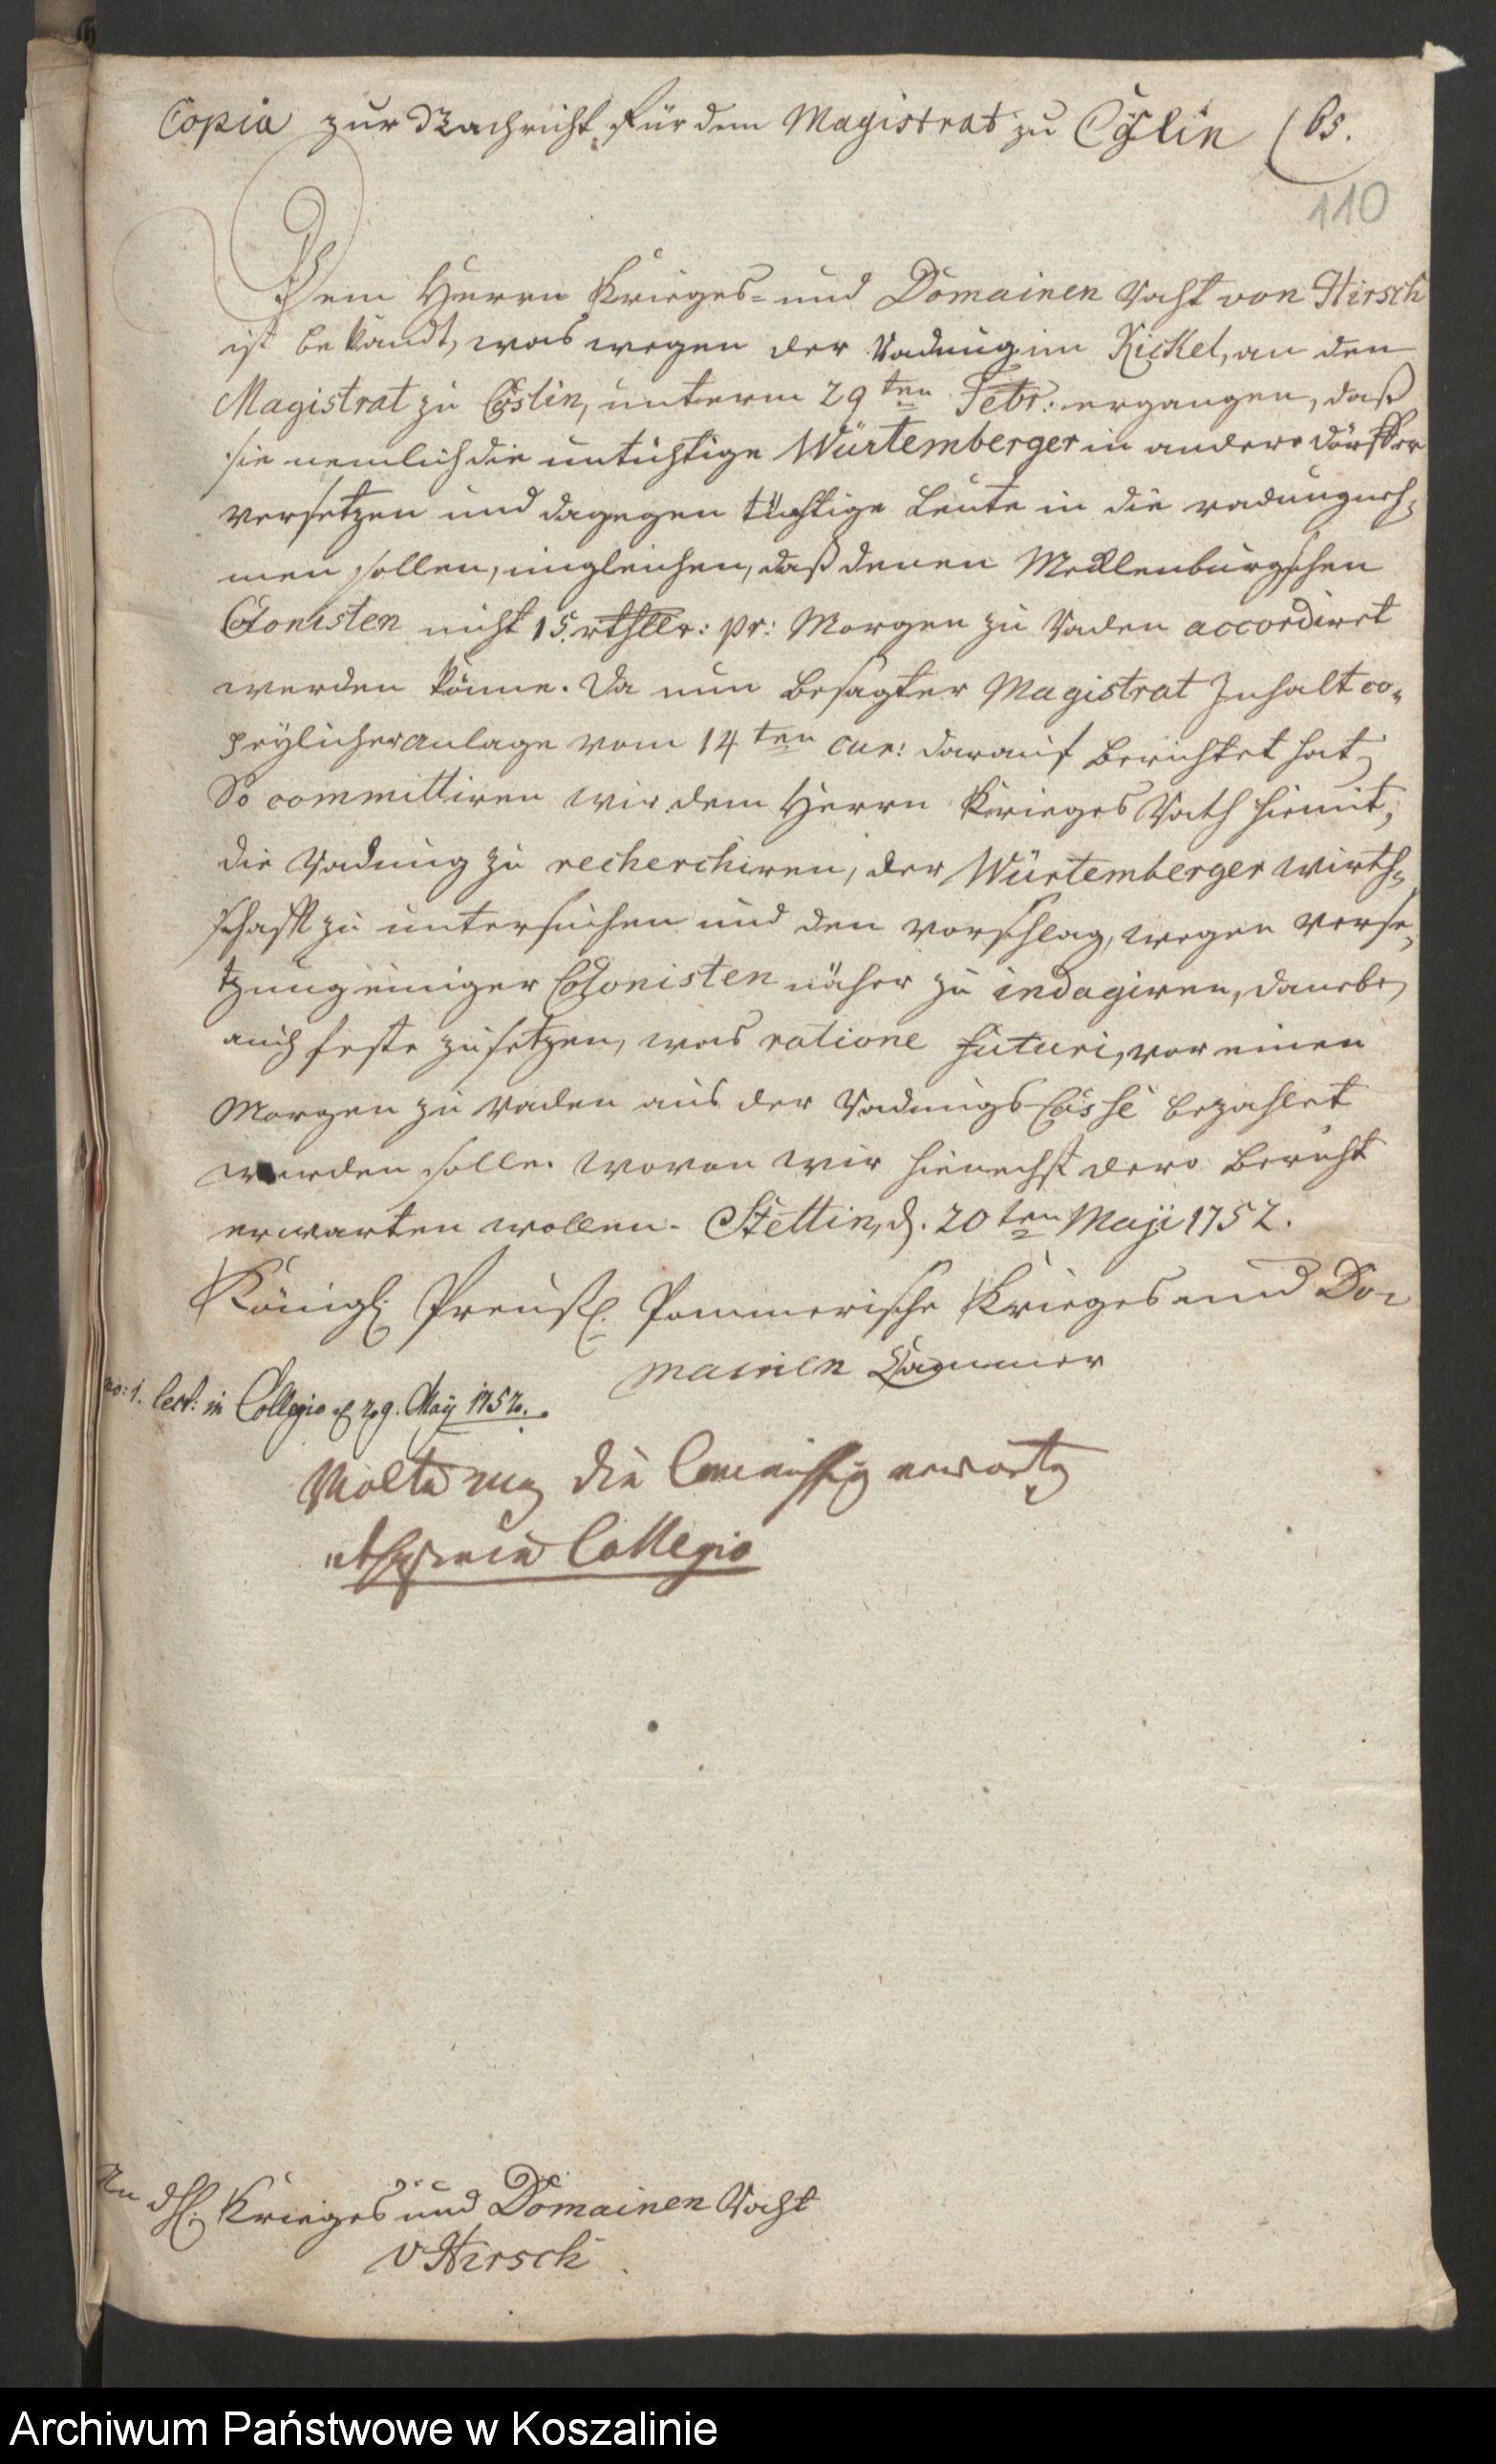 Copia zur Nachricht für dem Magistrat zu Cößlin
65.
110
Dem Herrn Krieges- und Domainen Raht von Hirsch
ist bekandt, was wegen der Radung im Kickel, an den
Magistrat zu Cöslin, unterm 29ten Febr: ergangen, daß
sie nemlich die untüchtige Würtemberger in andere Dörffer
versetzen und dagegen tüchtige Leute in die radung neh-
men sollen, imgleichen, daß denen Mecklenburgschen
Colonisten nicht 15 rthlr: pr: Morgen zu Raden accordiret
werden könne. Da nun besagter Magistrat Inhalt co-
peylicher anlage vom 14ten cur: darauf berichtet hat,
So committiren wir dem Herrn Krieges Rath hiemit,
die Radung zu recherchiren, der Würtemberger wirth-
schafft zu untersuchen und den vorschlag, wegen verse-
tzung einiger Colonisten näher zu indagiren, daneben
auch feste zu setzen, was ratione futuri, vor einen
Morgen zu raden aus der Radungs Casse bezahlet
werden solle. Wovon wir hienechst dero Bericht
erwarten wollen. Stettin, d. 20ten Maji 1752.
Königl: Preuß: Pommerische Krieges und Do-
mainen Cammer
no: 1. lect: in Collegio d 29. May 1752.
die Commission erwarten
Collegio
An dH: Krieges und Domainen Raht
v Hirsch
Archiwum Państwowe w Koszalinie